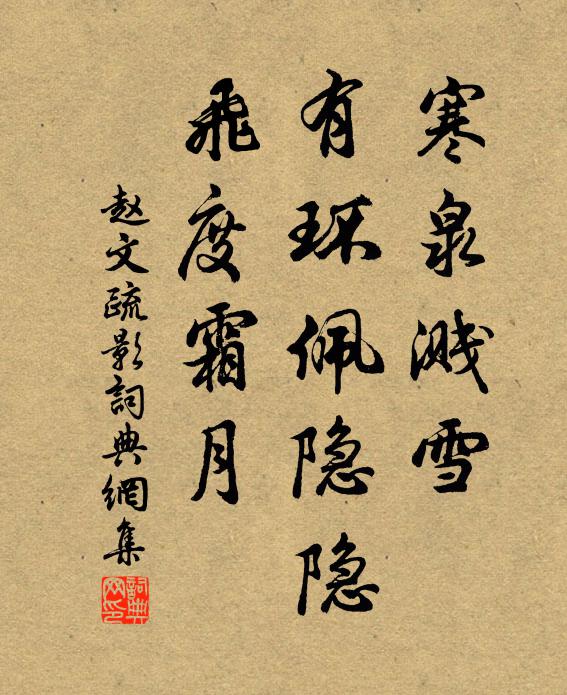 寒泉溅雪
有环佩隐隐
飛度霜月
赵文疏影詞典網集
詞典网印